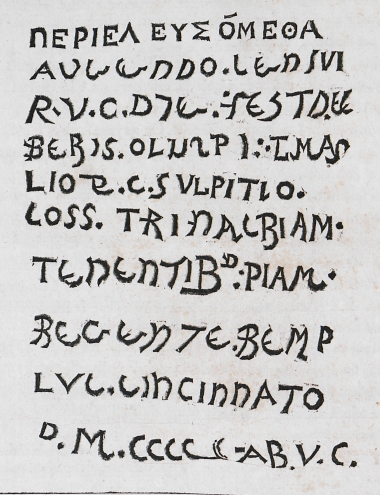 ΠΕΡΙΕΛ ΕΥΣ ΌΜΕΘΑ
AVGENDO.CENSVI
R.V.C.DIE.FEST.DE
BERIS.OLIMPI:T.MAN
LIOR.C.SVLPITIO.
COSS. TRINACRIAM.
TENENTIBD:PIAM.
REGENTE.REMP
LVC.CINCINNATO
D.M.CCCC AB.V.C.